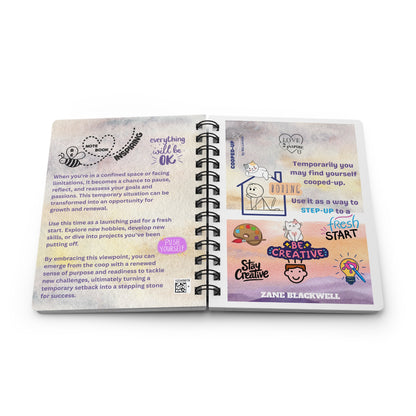 BEE
NOTE
BOOK
INSPIRING
everything
will be
OK
When you're in a confined space or facing
limitations, it becomes a chance to pause,
reflect, and reassess your goals and
passions. This temporary situation can be
transformed into an opportunity for
growth and renewal.
Use this time as a launching pad for a fresh
start. Explore new hobbies, develop new
skills, or dive into projects you've been
putting off.
PUSH
YOURSELF
By embracing this viewpoint, you can
emerge from the coop with a renewed
sense of purpose and readiness to tackle
new challenges, ultimately turning a
temporary setback into a stepping stone
for success.
LOVE
COOPED-UP
DOING
Temporarily you
may find yourself
cooped-up.
Use it as a way to
STEP-UP to a
fresh
START
BE
CREATIVE
Stay
Creative
ZANE BLACKWELL